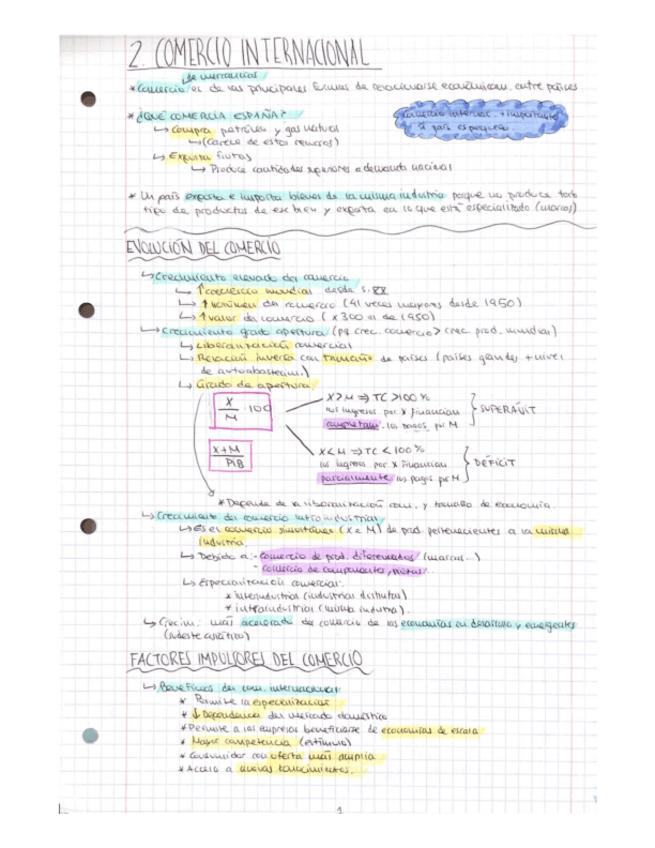 2. COMERCIO INTERNACIONAL
de mercancías
* Comercio es de las principales formas de relacionarse económicam. entre países
* ¿QUÉ COMERCIA ESPAÑA?
comercio internac. + importante
si país es pequeño
↳ Compra petróleo y gas natural
↳ (Carece de estos recursos)
↳ Exporta frutas
↳ Produce cantidades superiores a demanda nacional
* Un país exporta e importa bienes de la misma industria porque no produce todo
tipo de productos de ese bien y exporta en lo que está especializado (marcas)
EVOLUCIÓN DEL COMERCIO
↳ Crecimiento elevado del comercio
↳ ↑ comercio mundial desde S. XX
↳ ↑ volumen del comercio (41 veces mayores desde 1950)
↳ ↑ valor del comercio (x300 al de 1950)
↳ Crecimiento grado apertura (pq crec. comercio > crec. prod. mundial)
↳ Liberalización comercial
↳ Relación inversa con tamaño de países (países grandes + nivel
de autoabastecim.)
↳ Grado de apertura
X/M · 100
X > M ⇒ TC > 100 %
los ingresos por X financian
completam. los pagos por M
} SUPERÁVIT
X+M/PIB
X < M ⇒ TC < 100 %
los ingresos por X financian
parcialmente los pagos por M
} DÉFICIT
* Depende de la liberalización com. y tamaño de economía.
↳ Crecimiento del comercio intraindustrial
↳ Es el comercio simultáneo (X e M) de prod. pertenecientes a la misma
industria.
↳ Debido a: - comercio de prod. diferenciados (marcas...)
- comercio de componentes, piezas...
↳ Especialización comercial:
* interindustrial (industrias distintas)
* intraindustrial (misma industria).
↳ Crecim. más acelerado del comercio de las economías en desarrollo y emergentes
(sudeste asiático)
FACTORES IMPULSORES DEL COMERCIO
↳ Beneficios del com. internacional
* Permite la especialización
* ↓ Dependencia del mercado doméstico
* Permite a las empresas beneficiarse de economías de escala
* Mayor competencia (estímulo)
* Consumidor con oferta más amplia
* Acceso a nuevos conocimientos.
1